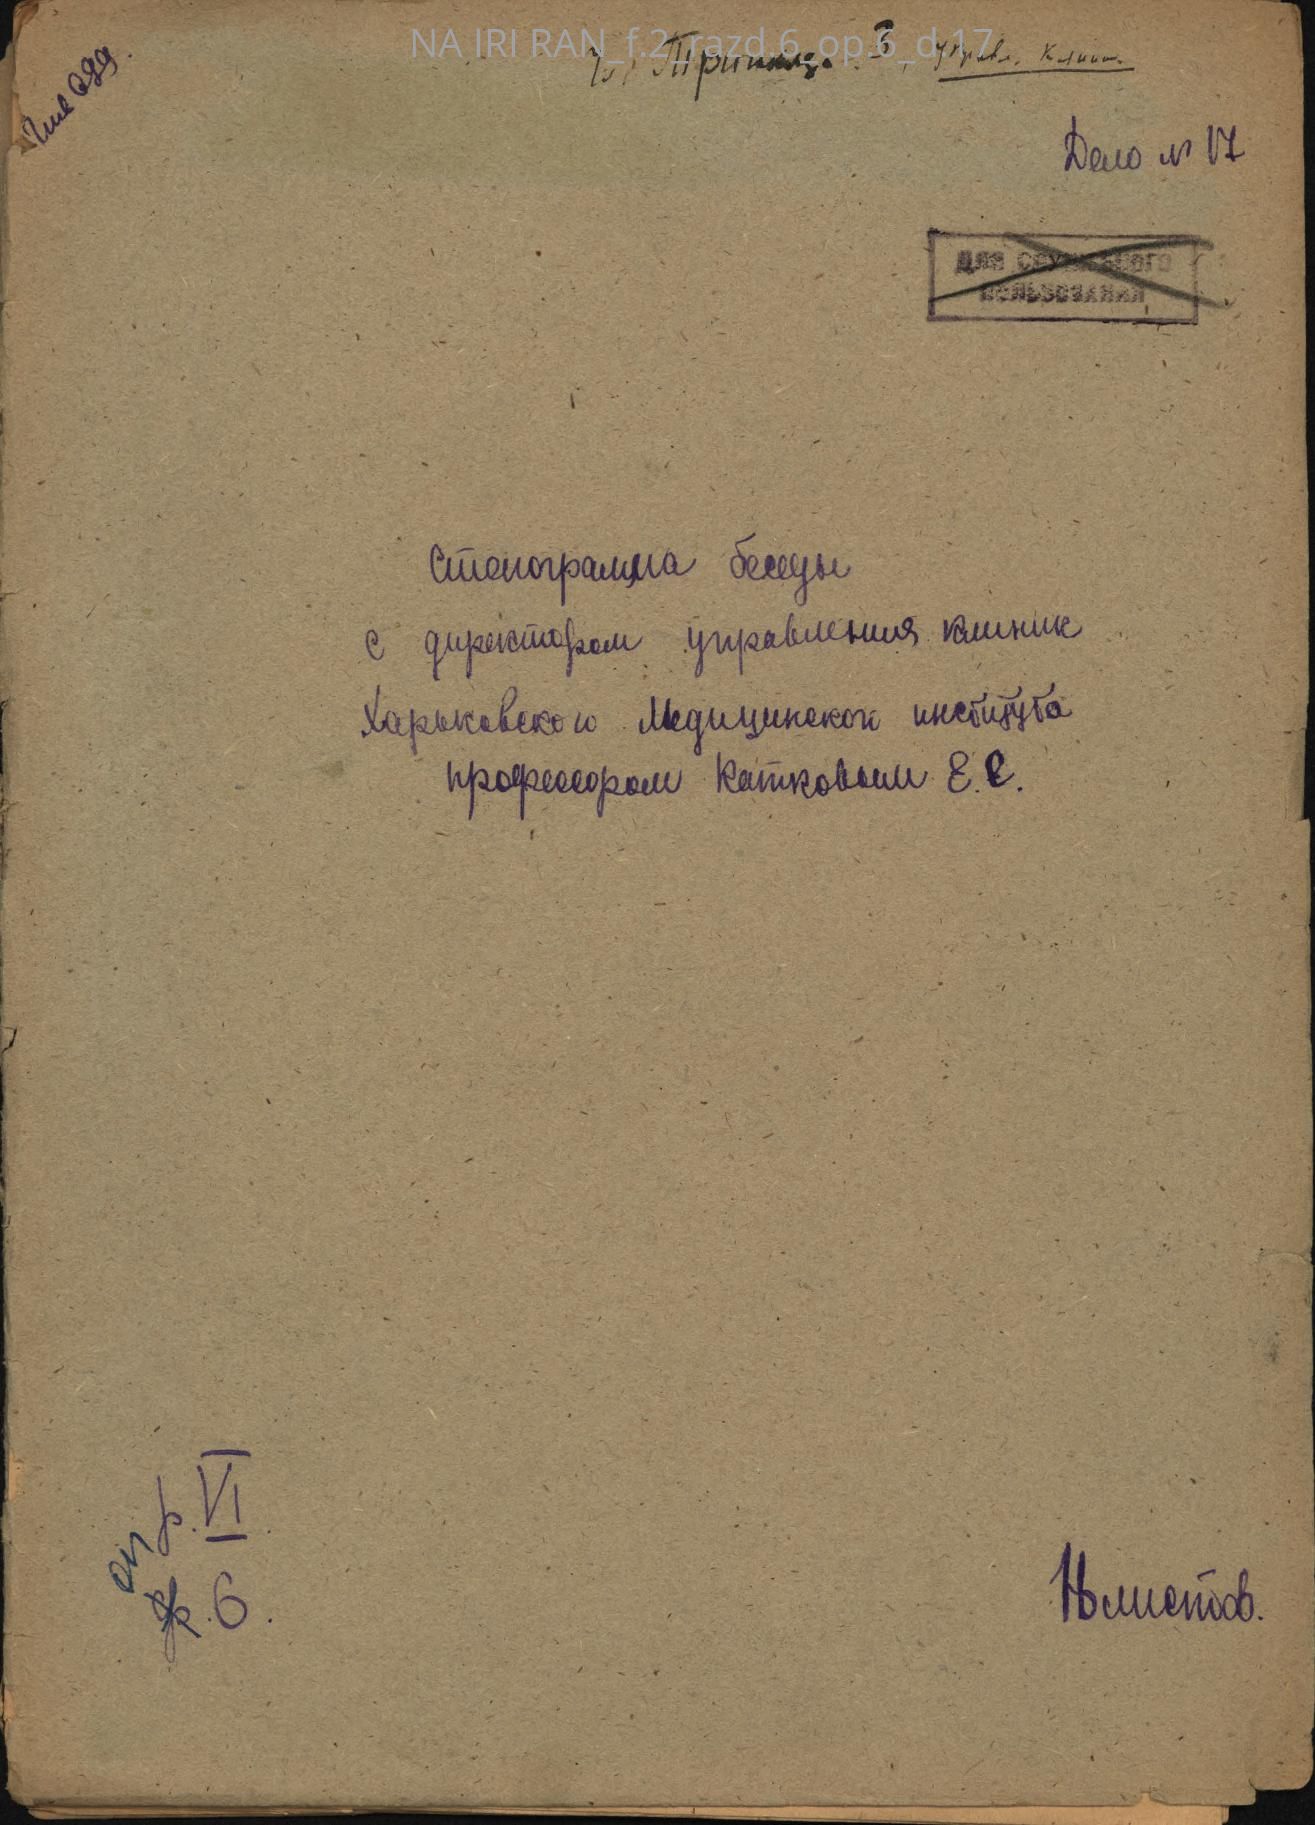 NA IRI RAN_f.2_razd.6_op.6_d.17
Управл. клин.
Дело № 17
ДЛЯ СЛУЖЕБНОГО
ПОЛЬЗОВАНИЯ
Стенограмма беседы
с директором управления клиник
Харьковского Медицинского института
профессором Катковым Е.С.
р. VI
оп
6.
листов.